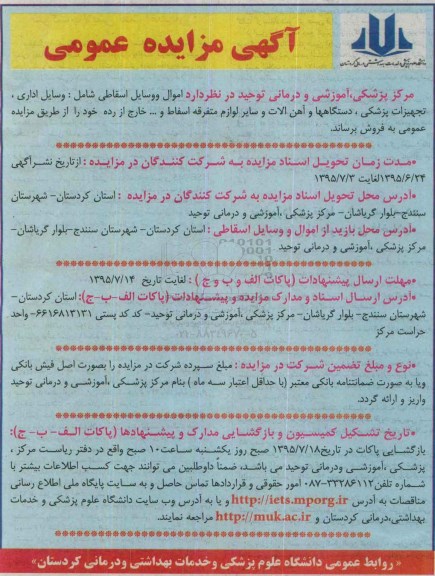 آگهی مزایده عمومی
مرکز پزشکی،آموزشی و درمانی توحید در نظردارد اموال ووسایل اسقاطی شامل : وسایل اداری ،
تجهیزات پزشکی ، دستگاهها و آهن آلات و سایر لوازم متفرقه اسقاط و ... خارج از رده خود را از طریق مزایده
عمومی به فروش برساند.
•مـدت زمان تحویـل اسناد مزایده بـه شـرکت کننـدگان در مزایـده : ازتاریخ نشـرآگهی
۱۳۹۵/۶/۲۴لغایت ۱۳۹۵/۷/۳
•آدرس محل تحویل اسناد مزایده به شرکت کنندگان در مزایده : استان کردستان- شهرستان
سنندج-بلوار گریاشان- مرکز پزشکی ،آموزشی و درمانی توحید
•آدرس محل بازید از اموال و وسایل اسقاطی : استان کردستان- شهرستان سنندج-بلوار گریاشان-
مرکز پزشکی ،آموزشی و درمانی توحید
•مهلت ارسال پیشنهادات (پاکات الف و ب و ج ) : لغایت تاریخ ۱۳۹۵/۷/۱۴
•آدرس ارسـال اسـناد و مدارک مزایده و پیشـنهادات (پاکات الف-ب-ج): استان کردستان-
شهرستان سنندج- بلوار گریاشان- مرکز پزشکی ،آموزشی و درمانی توحید- کد کد پستی ۶۶۱۶۸۱۳۱۳۱- واحد
حراست مرکز
•نوع و مبلغ تضمین شـرکت در مزایده : مبلغ سـپرده شرکت در مزایده را بصورت اصل فیش بانکی
ویا به صورت ضمانتنامه بانکی معتبر (با حداقل اعتبار سـه ماه ) بنام مرکز پزشـکی ،آموزشـی و درمانی توحید
واریز و ارائه گردد.
•تاریخ تشـکیل کمیسیون و بازگشـایی مدارک و پیشـنهادها (پاکات الـف- ب- ج):
بازگشـایی پاکات در تاریخ۱۳۹۵/۷/۱۸ صبح روز یکشـنبه ساعت۱۰ صبح واقع در دفتر ریاست مرکز ،
پزشکی ،آموزشـی ودرمانی توحید می باشد، ضمناً داوطلبین می توانند جهت کسـب اطلاعات بیشتر با
شماره تلفن۳۳۲۸۶۱۱۲-۰۸۷ امور حقوقی و قراردادها تماس حاصل و به سایت پایگاه ملی اطلاع رسانی
مناقصات به آدرس http://iets.mporg.ir و یا به آدرس وب سایت دانشگاه علوم پزشکی و خدمات
بهداشتی،درمانی کردستان و http://muk.ac.ir مراجعه نمایند.
« روابط عمومی دانشگاه علوم پزشکی وخدمات بهداشتی ودرمانی کردستان»